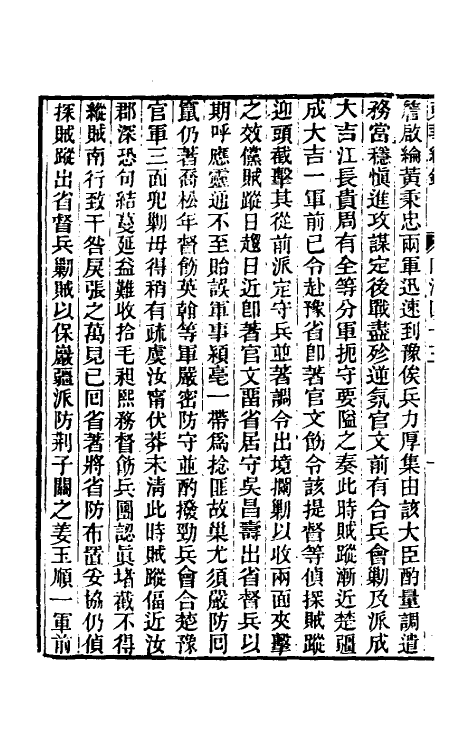 詹啟綸黃秉忠兩軍迅速到豫俟兵力厚集由該大臣酌量調遣
務當穩愼進攻謀定後戰盡殄逆氛官文前有合兵會勦及派成
大吉江長貴周有全等分軍扼守要隘之奏此時賊蹤漸近楚疆
成大吉一軍前已令赴豫省卽著官文飭令該提督等偵探賊蹤
迎頭截擊其從前派定守兵並著調令出境擱勦以收兩面夾擊
之效儻賊蹤日趨日近卽著官文留省居守吳昌壽出省督兵以
期呼應靈通不至貽誤軍事潁亳一帶爲捻匪故巢尤須嚴防回
竄仍著喬松年督飭英翰等軍嚴密防守並酌撥勁兵會合楚豫
官軍三面兜勦毋得稍有疏虞汝甯伏莽未清此時賊蹤偪近汝
郡深恐句結蔓延益難收拾毛昶熙務督飭兵團認眞堵截不得
縱賊南行致干咎戾張之萬見已回省著將省防布置妥協仍偵
探賊蹤出省督兵勦賊以保嚴疆派防荆子關之姜玉順一軍前